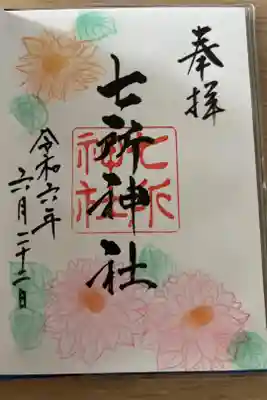 奉拝
七所神社
七所
神社
令和六年
六月二十二日